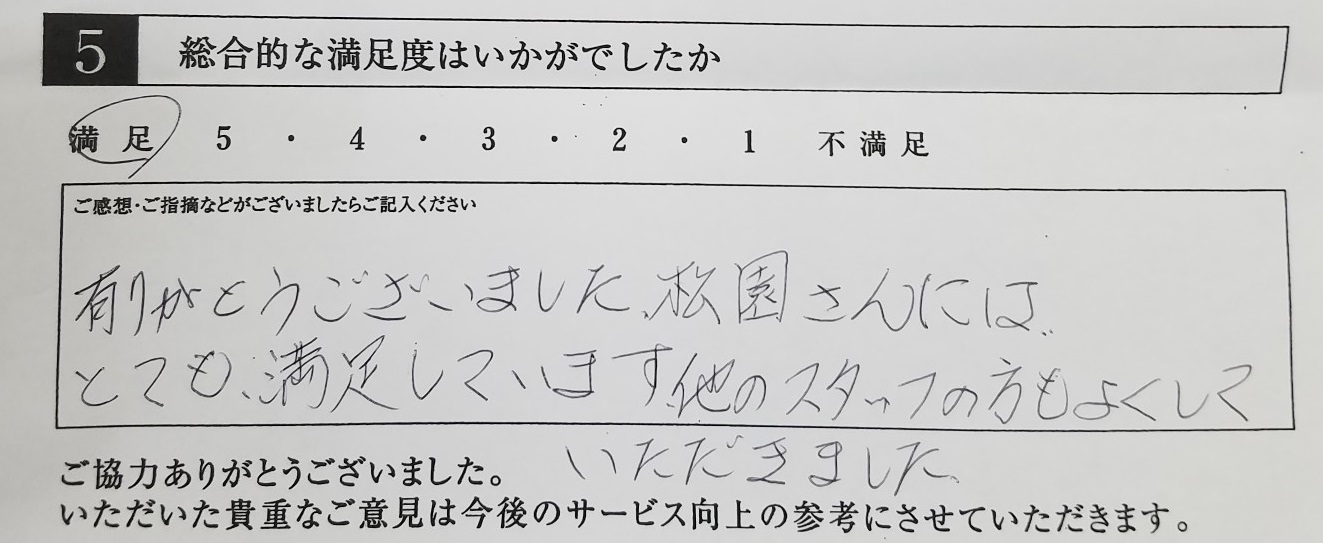 5 総合的な満足度はいかがでしたか
満 足 5 ・ 4 ・ 3 ・ 2 ・ 1 不 満 足
ご感想・ご指摘などがございましたらご記入ください
有りがとうございました、松園さんには、
とても、満足しています、他のスタッフの方もよくして
いただきました、
ご協力ありがとうございました。
いただいた貴重なご意見は今後のサービス向上の参考にさせていただきます。